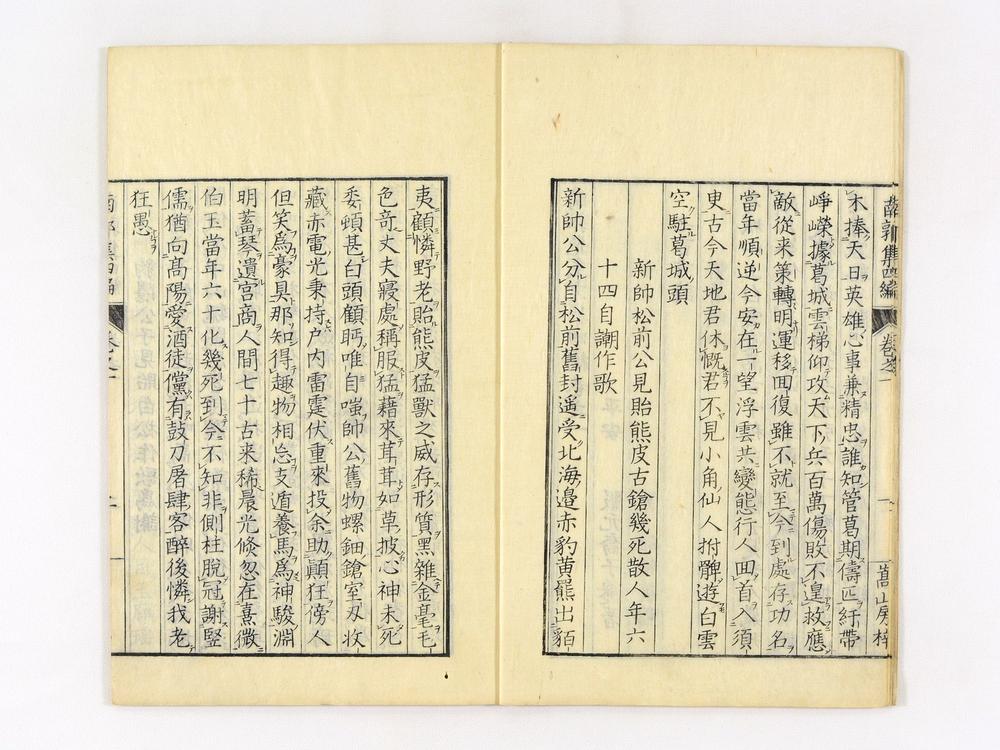 南郭集四編 卷之一 一 嵩山房梓
木捧天日英雄心事兼精忠誰知管葛期儔匹紆帶
崢嶸據葛城雲梯仰攻天下兵百萬傷敗不遑救應
敵從来策轉明運移回復雖不就至今到處存功名
當年順逆今安在一望浮雲共變態行人回首入須
更古今天地君休慨君不見小角仙人拊髀遊白雲
空駐葛城頭
新帥松前公見貽熊皮古鎗幾死散人年六
十四自謝作歌
新帥公分自松前舊封遥受北海邉赤豹黄羆出貊
夷顧憐野老貽熊皮猛獸之威存形質黑雜金毫毛
色竒丈夫寢處稱服猛藉來茸茸如草披心神未死
委頓甚白頭顧眄唯自嗤帥公舊物螺鈿鎗室刃收
藏赤電光秉持户内雷霆伏重來投余助顛狂傍人
但笑為豪具那知得趣物相忘支遁養馬為神駿淵
明蓄琴遺宮商人間七十古来稀晨光倏忽在熹微
伯玉當年六十化幾死到今不知非側柱脱冠謝竪
儒猶向髙陽愛酒徒儻有鼓刀屠肆客醉後憐我老
狂愚
南郭集四編 卷之一